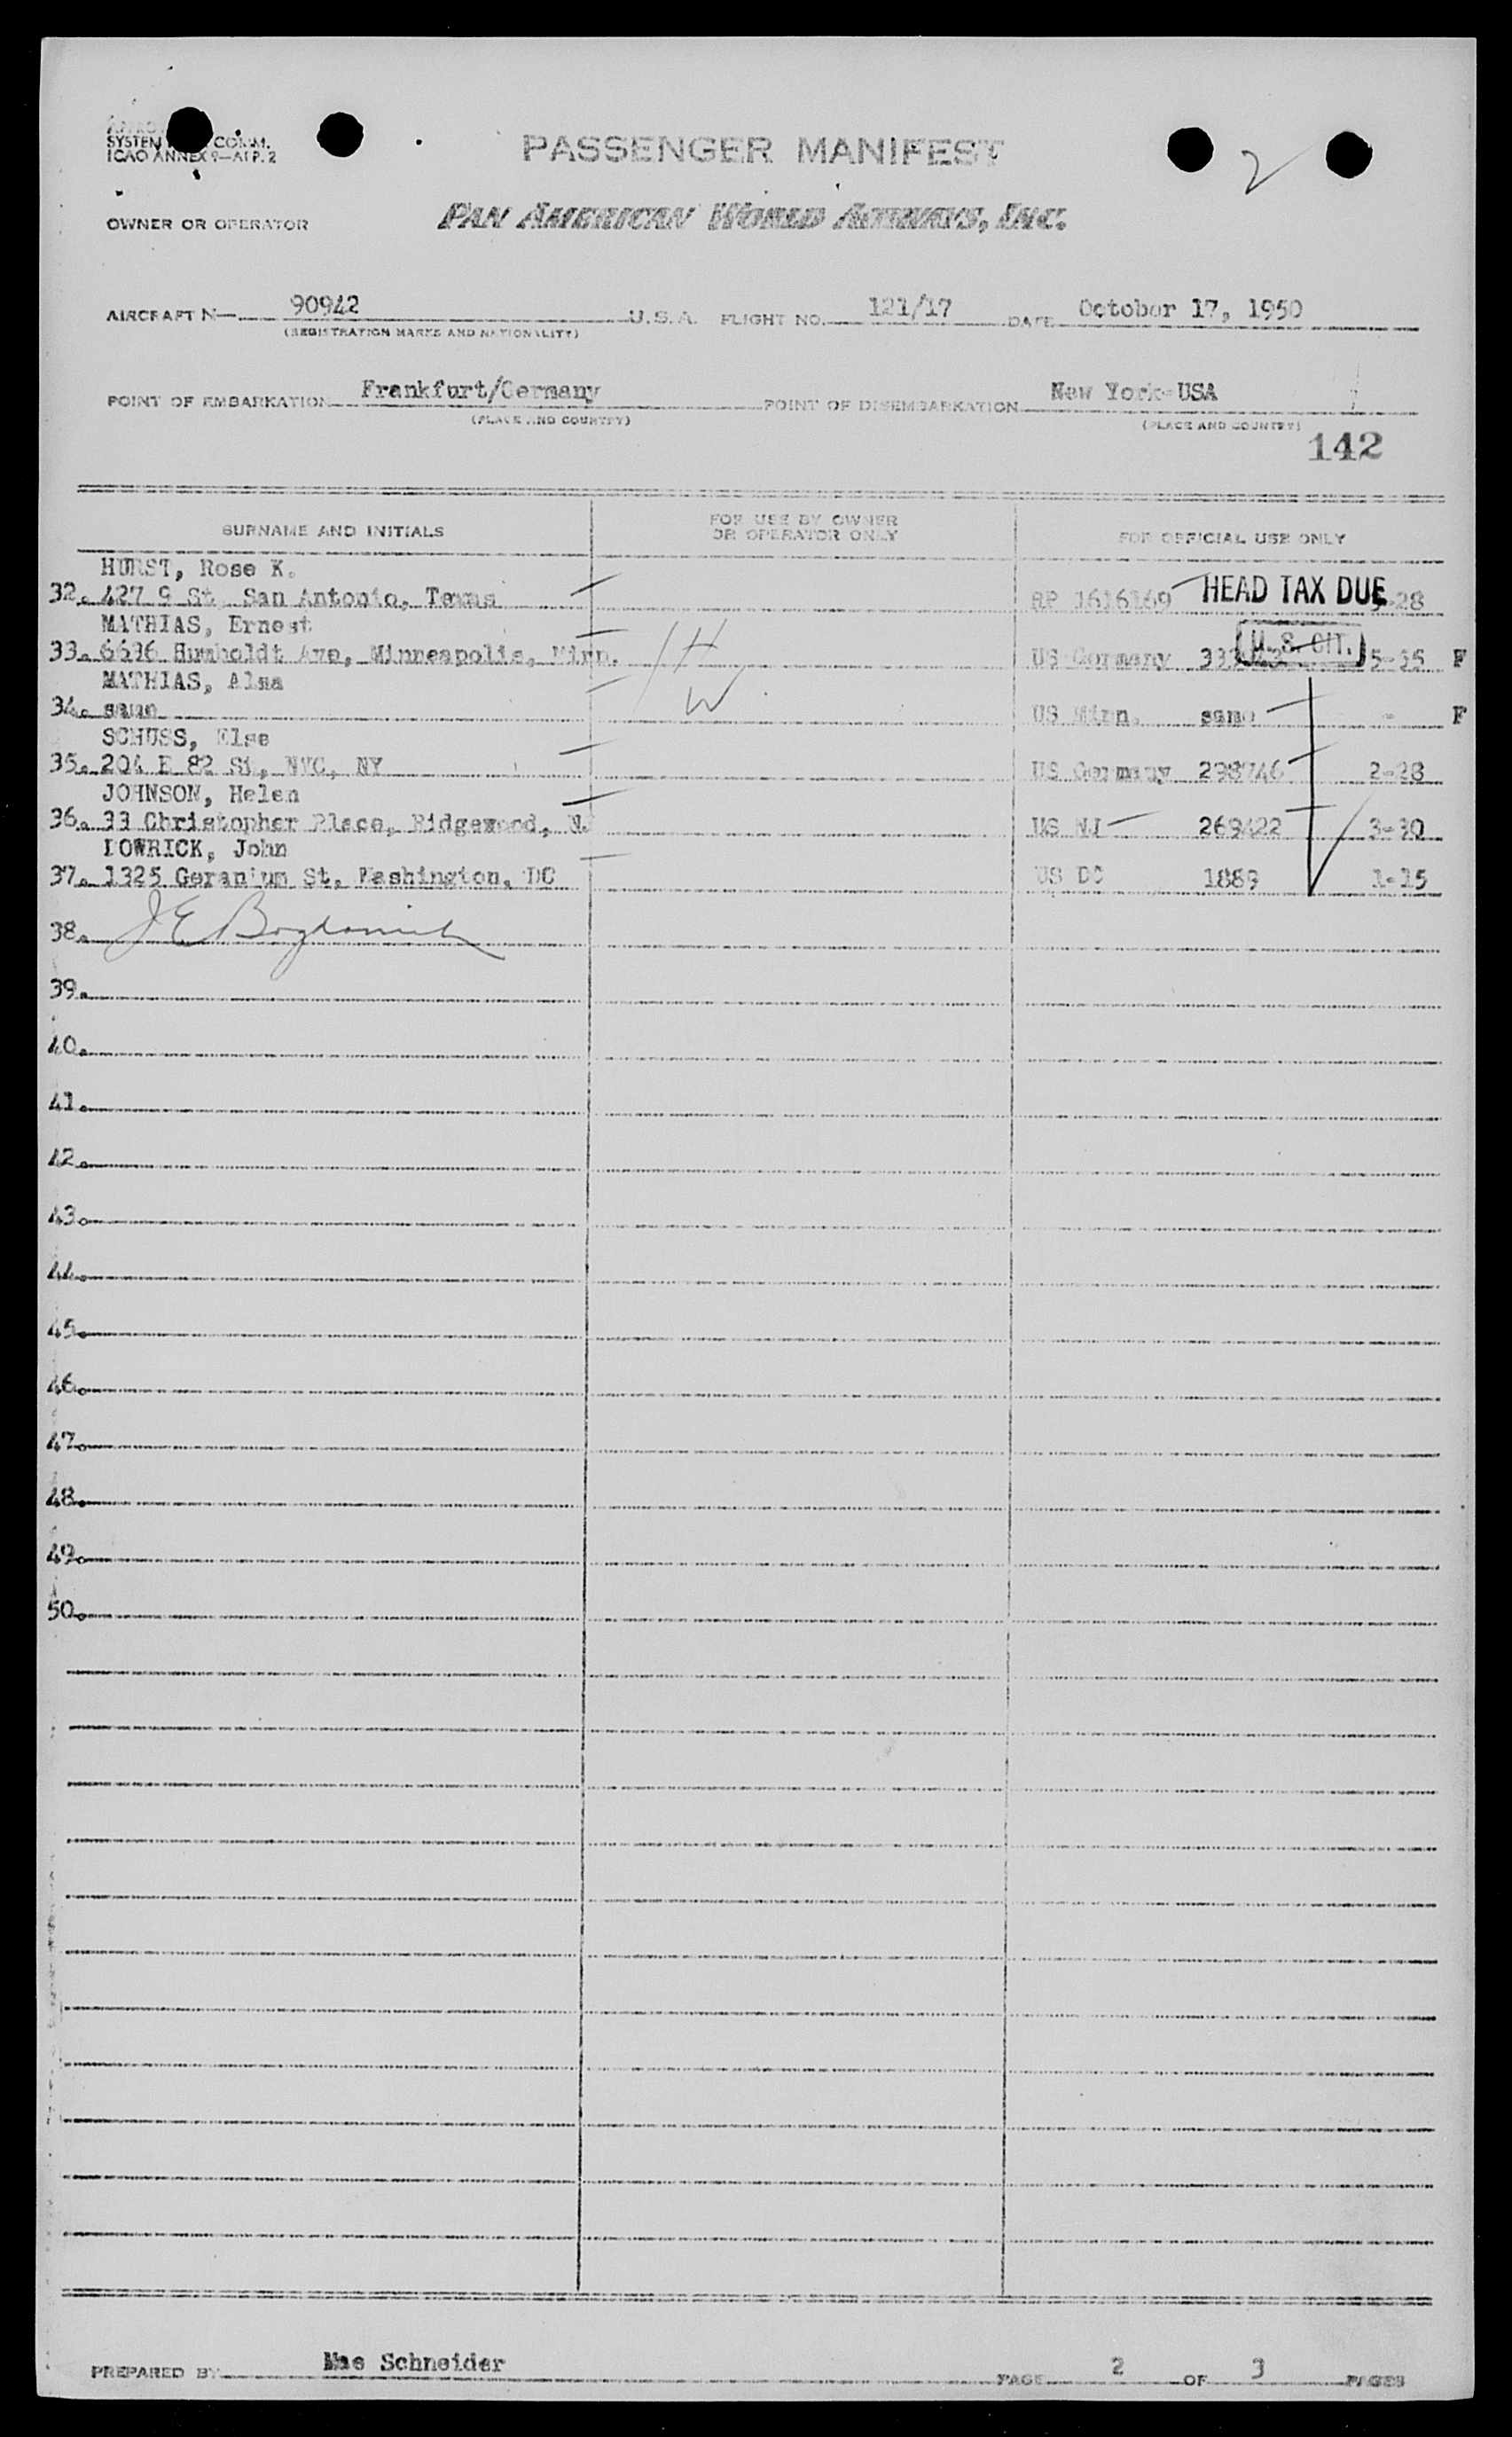 SYSTEM COMM.
ICAO ANNEX 9—AP P. 2
PASSENGER MANIFEST
2
OWNER OR OPERATOR PAN AMERICAN WORLD AIRWAYS, INC.
AIRCRAFT N— 90942 U.S.A. FLIGHT NO. 121/17 DATE October 17, 1950
(REGISTRATION MARKS AND NATIONALITY)
POINT OF EMBARKATION Frankfurt/Germany POINT OF DISEMBARKATION New York-USA
(PLACE AND COUNTRY) (PLACE AND COUNTRY)
142
SURNAME AND INITIALS FOR USE BY OWNER OR OPERATOR ONLY FOR OFFICIAL USE ONLY
HURST, Rose K.
32. 427 9 St, San Antonio, Texas RP 1616169 HEAD TAX DUE -28
MATHIAS, Ernest
33. 6636 Humboldt Ave, Minneapolis, Minn. H US Germany U.S. CIT. F
MATHIAS, Alma
34. same W US Minn. same - F
SCHUSS, Else
35. 204 E 82 St, NYC, NY US Germany 298746 2-28
JOHNSON, Helen
36. 33 Christopher Place, Ridgewood, NJ US NJ 269422 3-30
DOWRICK, John
37. 1325 Geranium St, Washington, DC US DC 1889 1-15
38.
39.
40.
41.
42.
43.
44.
45.
46.
47.
48.
49.
50.
PREPARED BY Mae Schneider PAGE 2 OF 3 PAGES